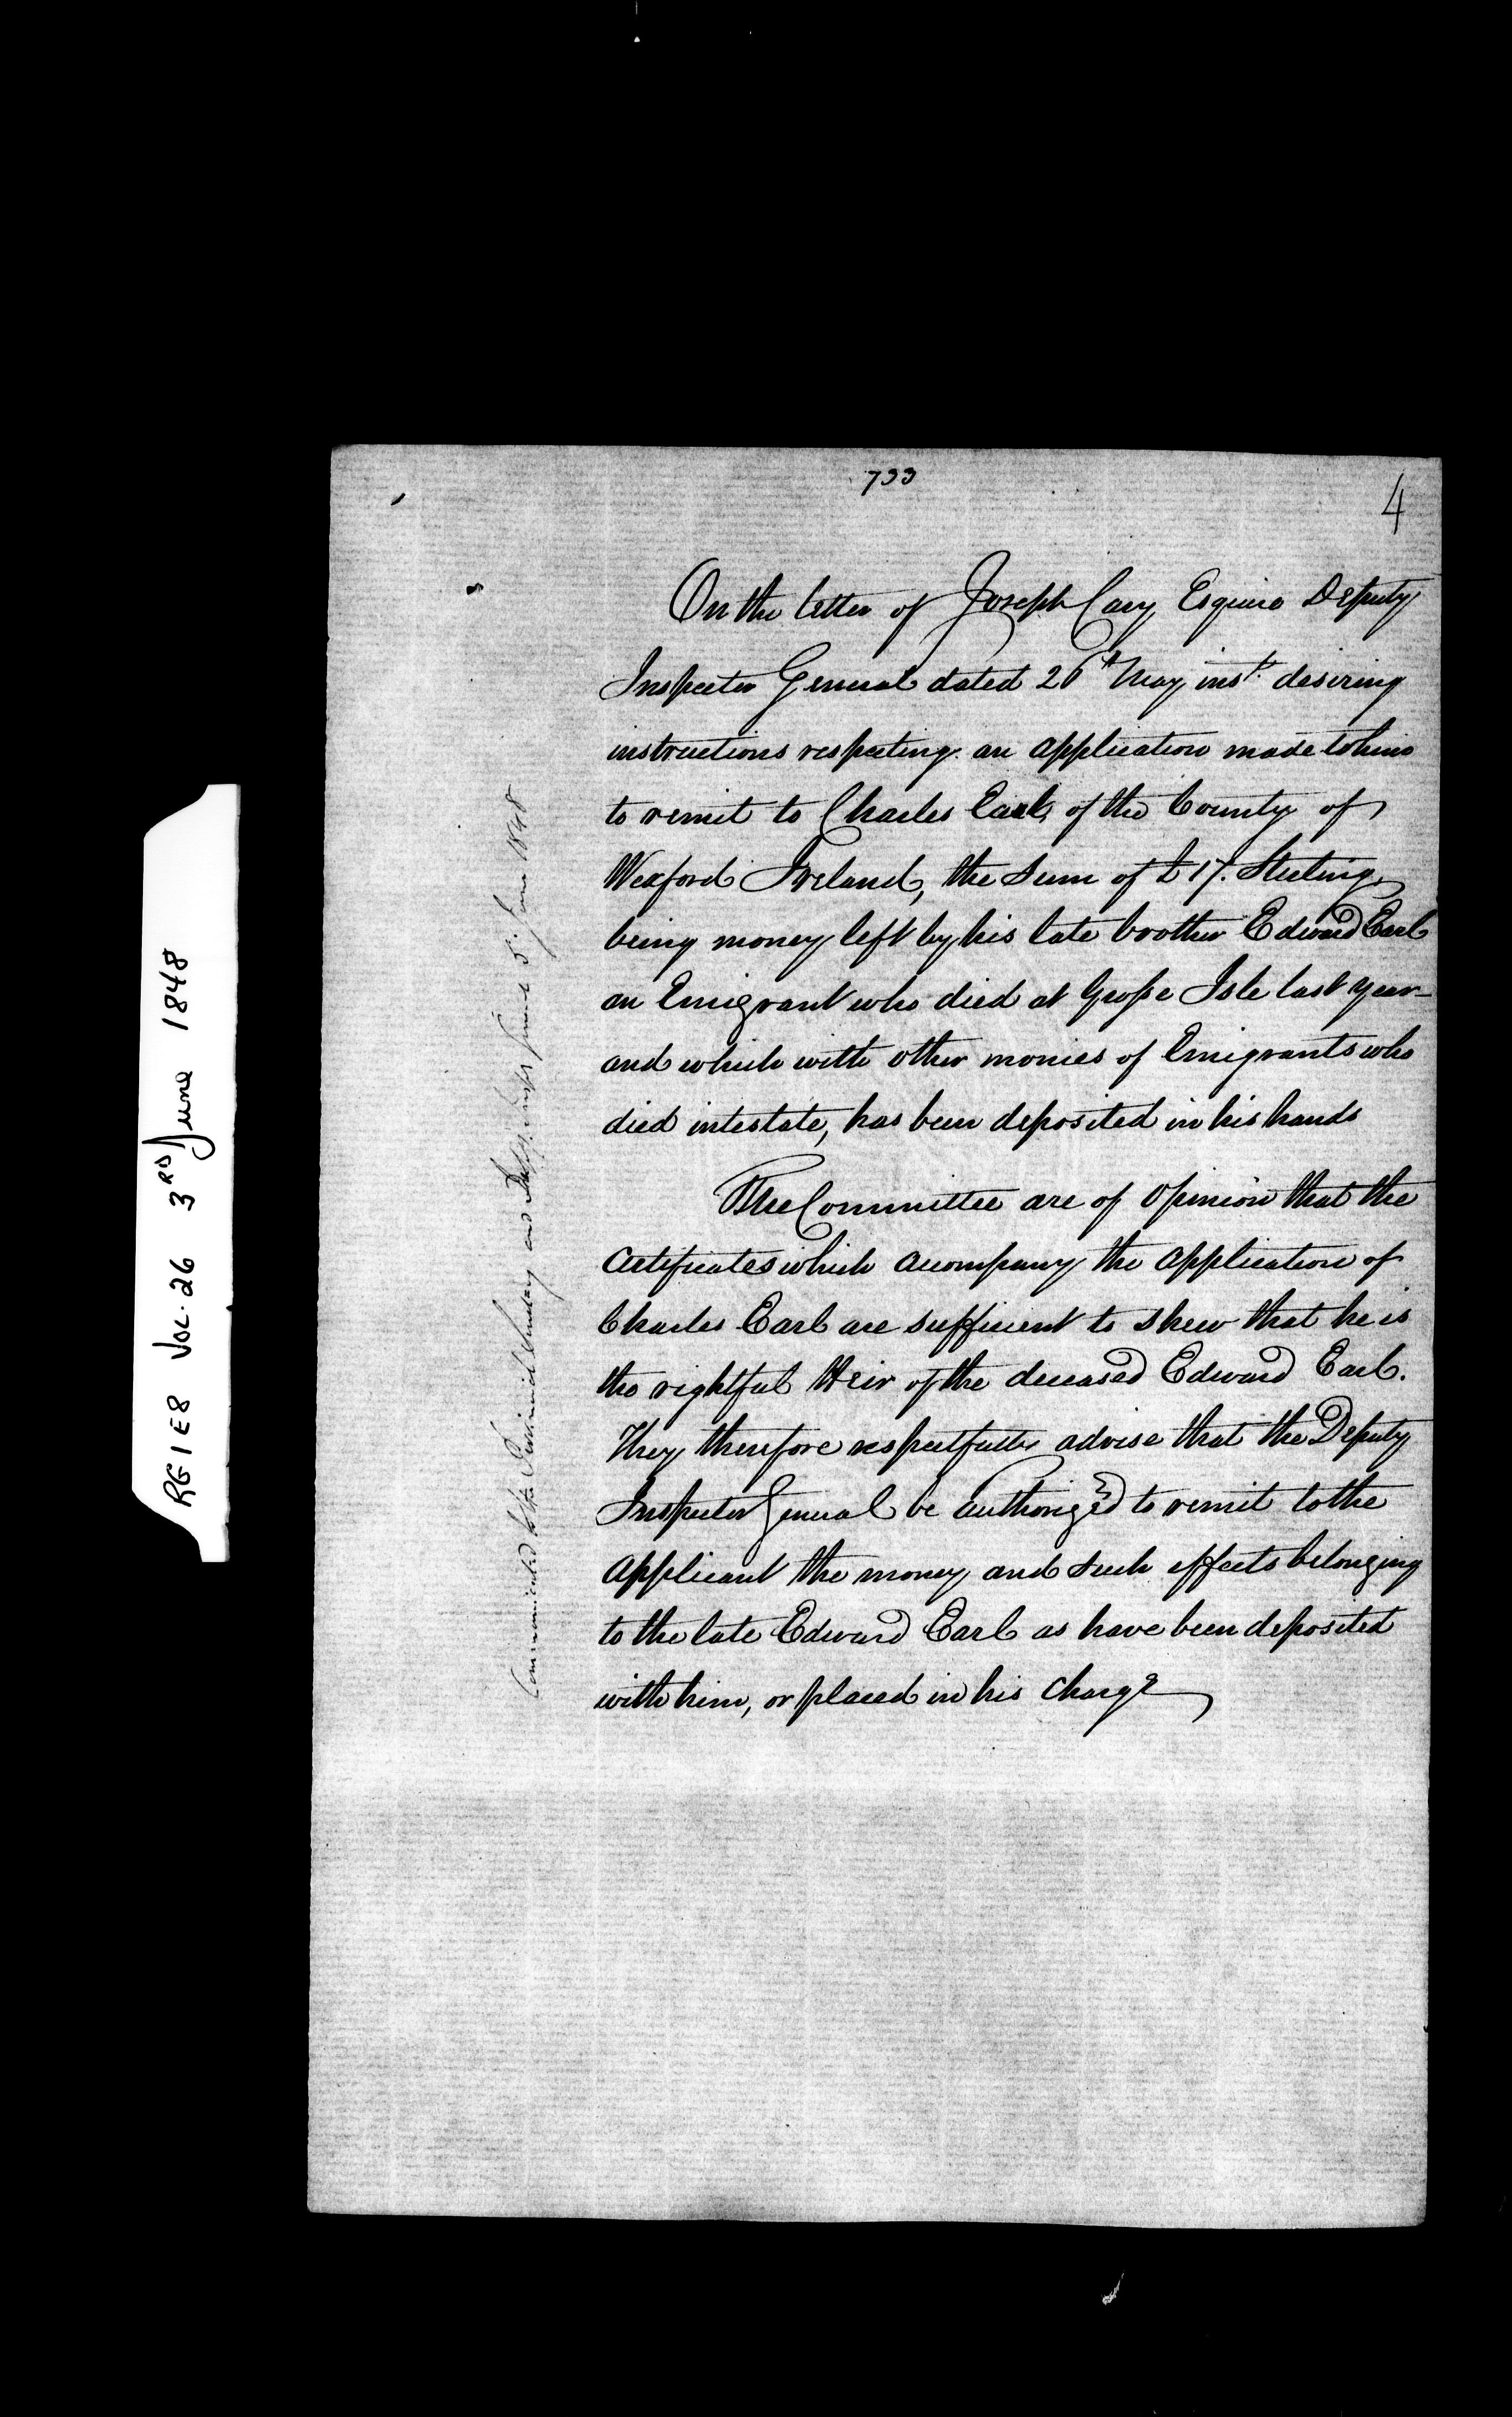 733
4
On the letter of Joseph Cary Esquire Deputy
Inspector General dated 26th May inst. desiring
instructions respecting an application made to him
to remit to Charles Earl, of the County of
Wexford Ireland, the Sum of £17. Sterling,
being money left by his late brother Edward Earl
an Emigrant who died at Grosse Isle last year—
and which with other monies of Emigrants who
died intestate, has been deposited in his hands
The Committee are of opinion that the
Certificates which accompany the application of
Charles Earl are sufficient to shew that he is
the rightful Heir of the deceased Edward Earl.
They therefore respectfully advise that the Deputy
Inspector General be authorized to remit to the
applicant the money and such effects belonging
to the late Edward Earl as have been deposited
with him, or placed in his charge
Communicated to the Provincial Secretary and Dep. June 1848
RG 1 E8 VOL. 26 3RD June 1848